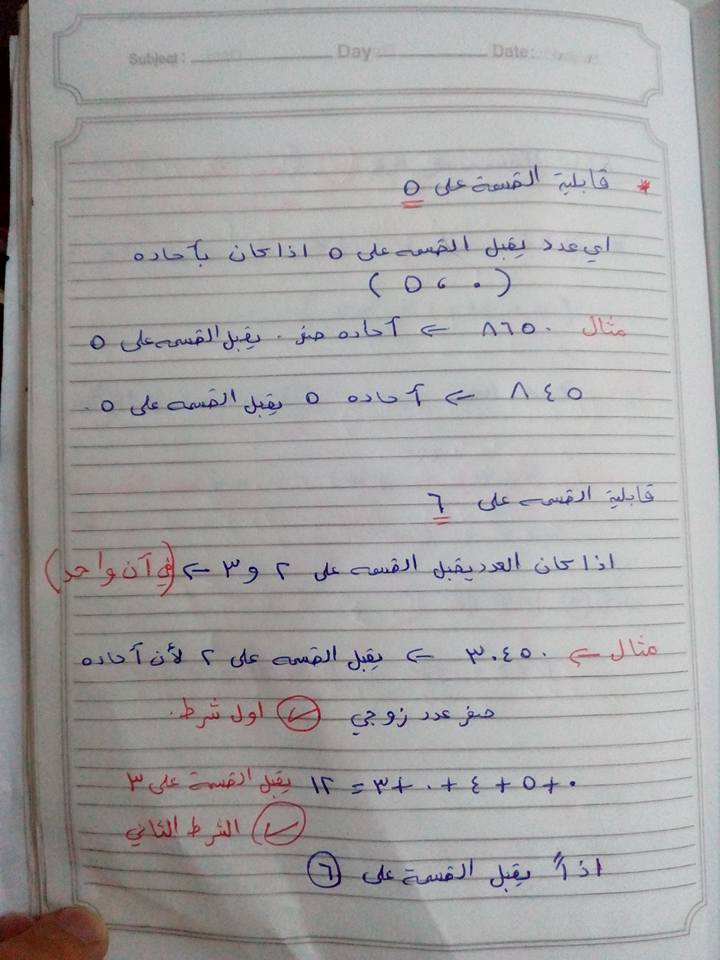 Subject: Day Date:
* قابلية القسمة على ٥
اي عدد يقبل القسمه على ٥ اذا كان بآحاده
(٠ ، ٥)
مثال ٨٦٥٠ ⇐ آحاده صفر . يقبل القسمه على ٥
٨٤٥ ⇐ آحاده ٥ يقبل القسمه على ٥.
قابلية القسمه على ٦
اذا كان العدد يقبل القسمه على ٢ و ٣ ⇐ (في آن واحد)
مثال ⇐ ٣٠٤٥٠ ⇐ يقبل القسمه على ٢ لأن آحاده
صفر عدد زوجي ✓ اول شرط.
٠+٥+٤+٠+٣ = ١٢ يقبل القسمة على ٣
✓ الشرط الثاني
اذاً يقبل القسمة على ٦